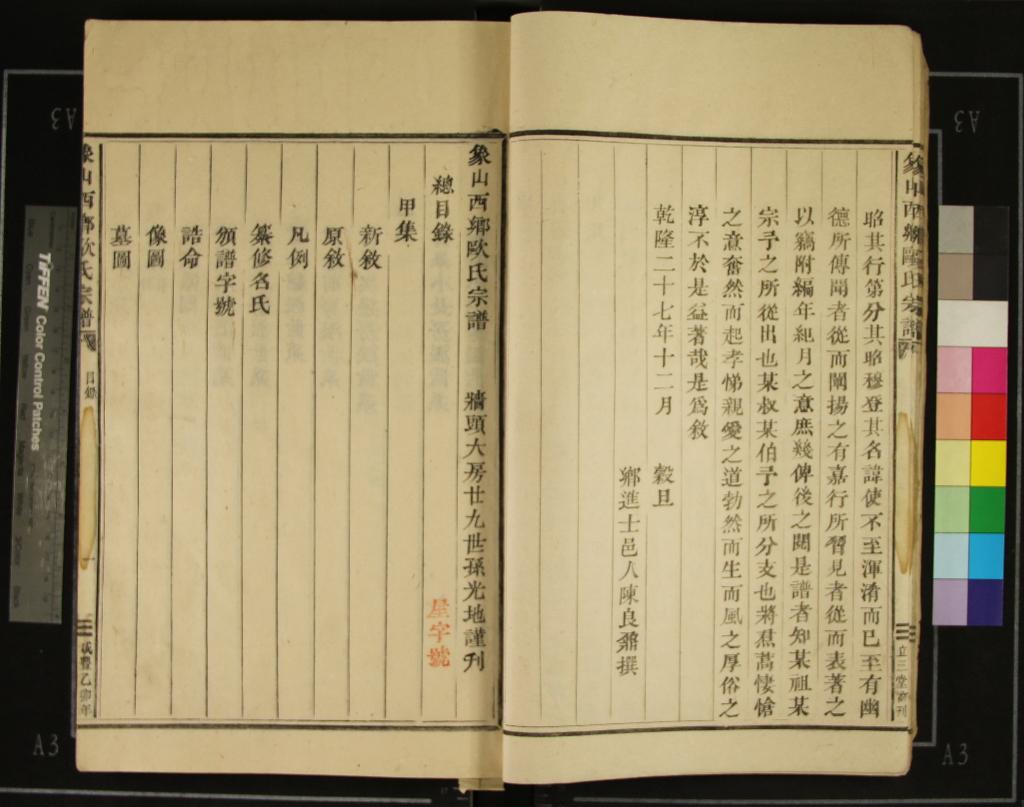 象山西鄉歐氏宗譜
昭其行第分其昭穆登其名諱使不至渾淆而已至有幽
德所傳聞者從而闡揚之有嘉行所習見者從而表著之
以竊附編年紀月之意庶幾俾後之閱是譜者知某祖某
宗予之所從出也某叔某伯予之所分支也將焄蒿悽愴
之意奮然而起孝悌親愛之道勃然而生而風之厚俗之
淳不於是益著哉是爲敘
乾隆二十七年十二月 穀旦
鄉進士邑人陳良鼐撰
立三堂 刊
象山西鄉歐氏宗譜 牆頭大房廿九世孫光地謹刊
總目錄 星字號
甲集
新敘
原敘
凡例
纂修名氏
頒譜字號
誥命
像圖
墓圖
象山西鄉歐氏宗譜 目錄 一 咸豐乙卯年
TIFFEN Color Control Patches
A3
A3
A3
A3